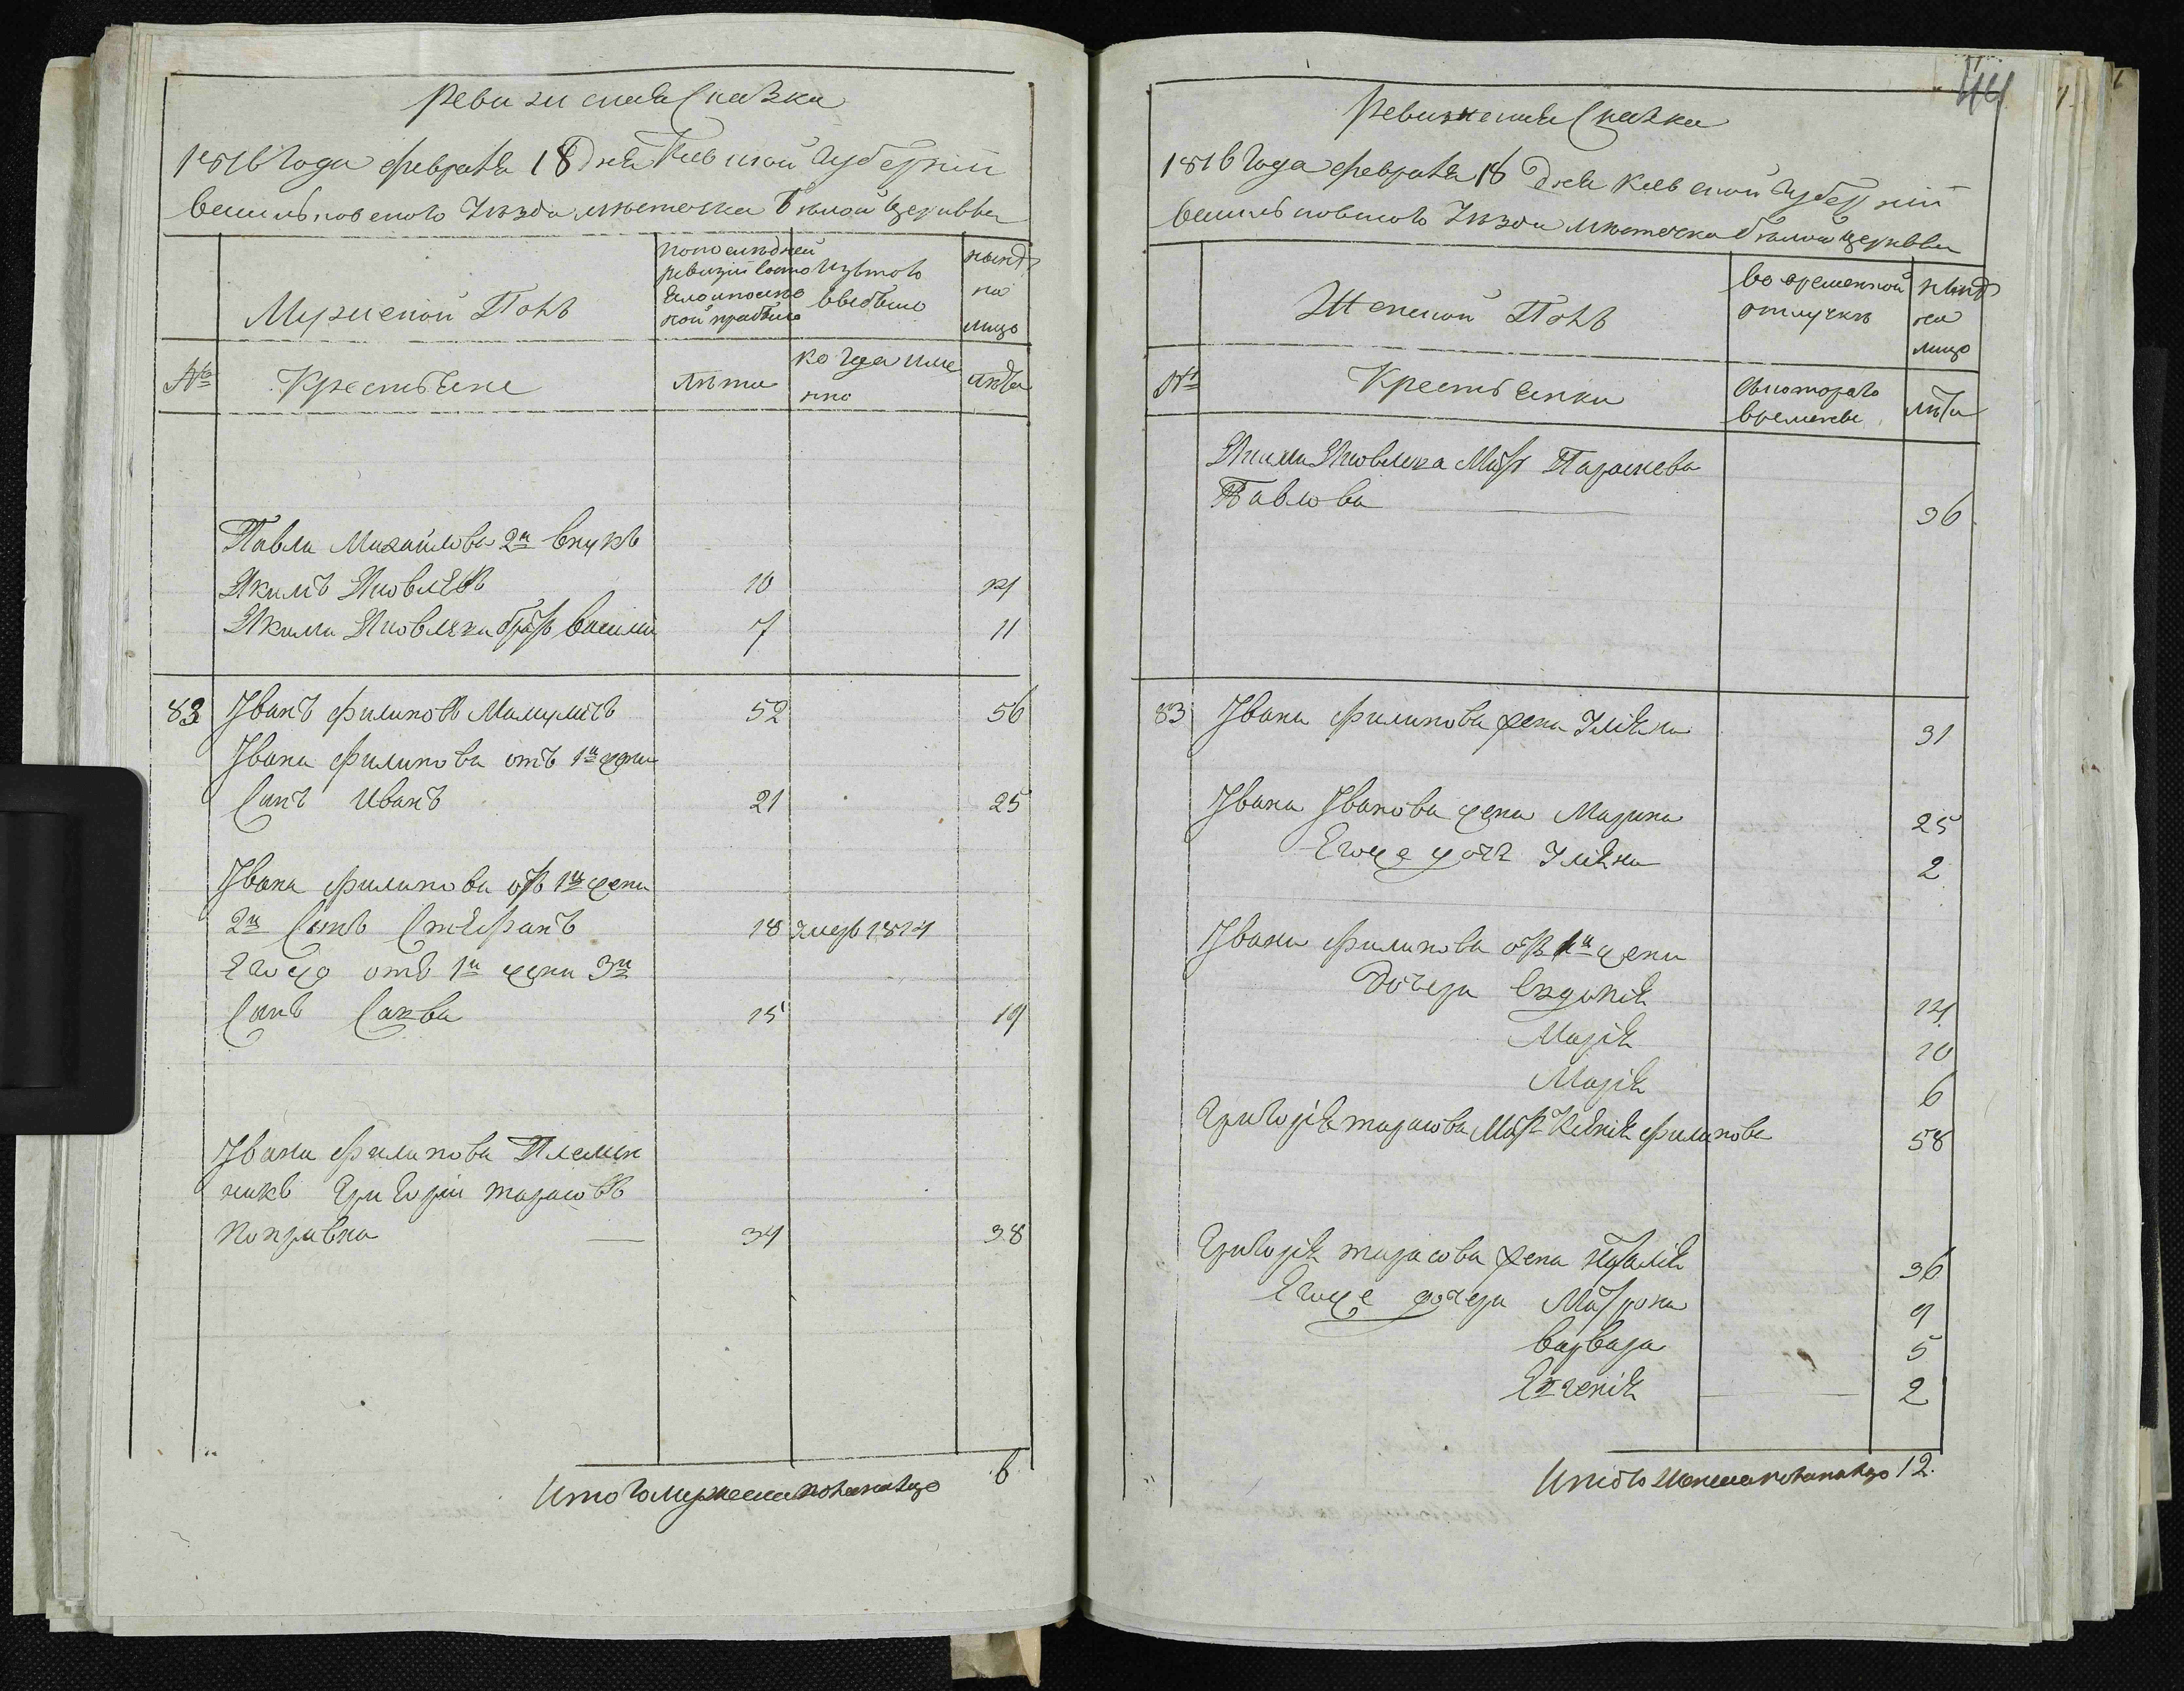 Ревизская Сказка
1816 Года февраля 18 Дня Киевской Губерніи
Васильковского Уѣзда мѣстечка Бѣлой Церквы
Мужеской Полъ
по последней
ревизіи состояло
и после
оной прибыло
Изъ того
выбыло
нынѣ
на
лицо
№
Крестьяне
лѣта
когда име
нно
лѣта
Павла Михайлова 2й внукъ
Якимъ Яковлевъ 10 14
Якима Яковлева братъ Василь 7 11
83 Іванъ Филиповъ 52 56
Івана Филипова отъ 1й жены
Сынъ Иванъ 21 25
Івана Филипова отъ 1й жены
2й Сынъ Стефанъ 18 умеръ 1814
Егожъ отъ 1й жены 3й
Сынъ Саква 15 19
Івана Филипова Племян
никъ Григорій Тарасовъ
Коправка 34 38
Итого мужеска пола на лицо 6
44
Ревизская Сказка
1816 Года февраля 18 Дня Киевской Губерніи
Васильковского Уѣзда мѣстечка Бѣлой Церквы
Женской Полъ
во временной
отлучкѣ
нынѣ
на
лицо
№
Крестьянки
съ которого
времены
лѣта
Якима Яковлева Мать Параскева
Павлова 36
83 Івана Филипова жена Уліяна 31
Івана Іванова жена Марина 25
Егоже дочь Уліяна 2
Івана Филипова отъ 1й жены
Дочери Евдокія 14
Марія 10
Марія 6
Григорія Тарасова Мать Ксенія Филипова 58
Григорія Тарасова жена Наталія 36
Егоже дочери Матрона 9
Варвара 5
Евгенія 2
Итого женска пола на лицо 12.